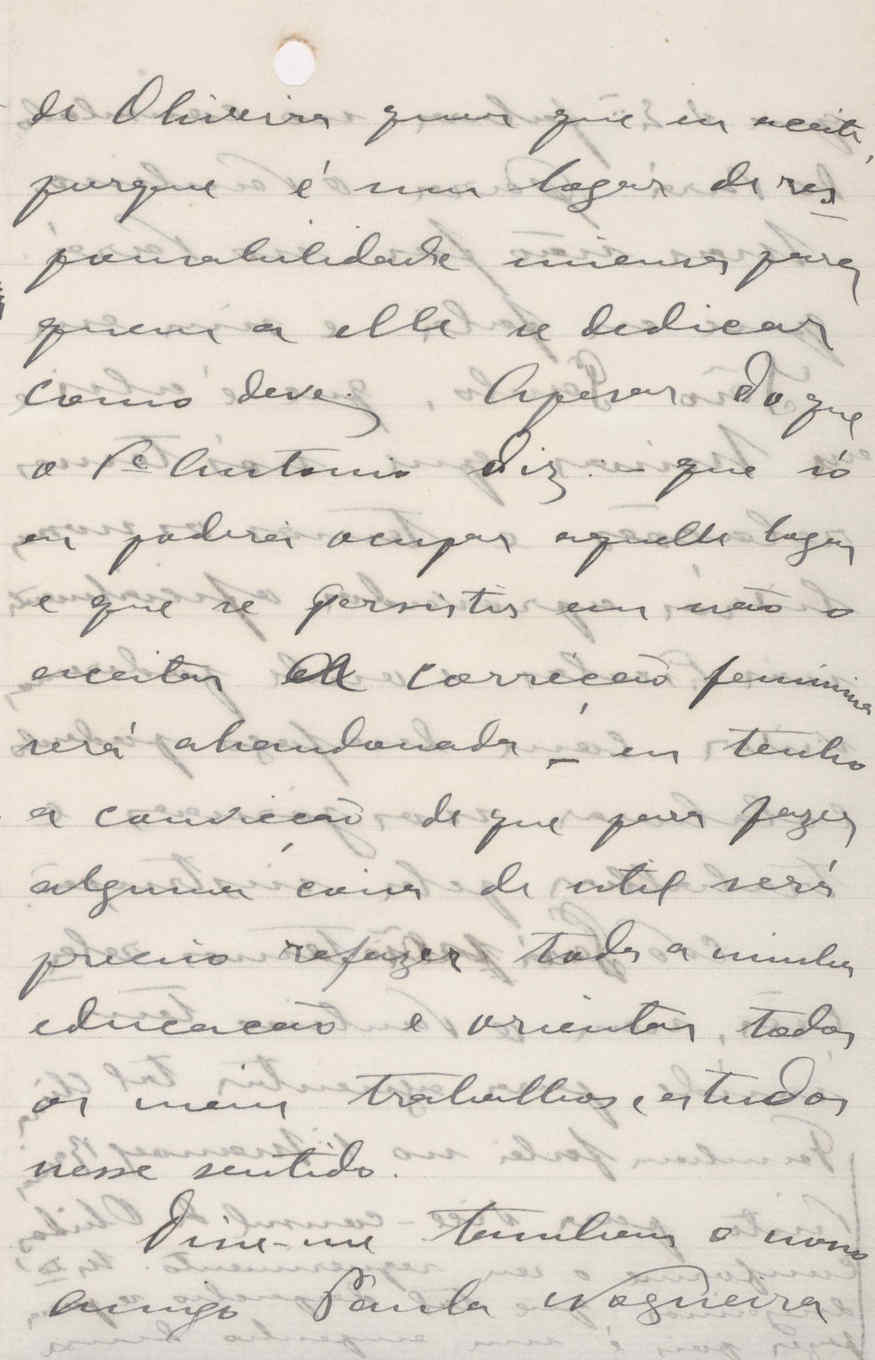 de Oliveira quer que eu aceite,
porque é um logar de res-
ponsabilidade imensa para
quem a elle se dedicar
como deve. Apesar do que
o Pe Antonio diz: – que só
eu poderei ocupar aquelle logar
e que se persistir em não o
aceitar a correcção feminina
será abandonada – eu tenho
a convicção de que para fazer
alguma coisa de util será
preciso refazer toda a minha
educação e orientar todos
os meus trabalhos e estudos
nesse sentido.
Disse-me tambem o nosso
amigo Paula Nogueira